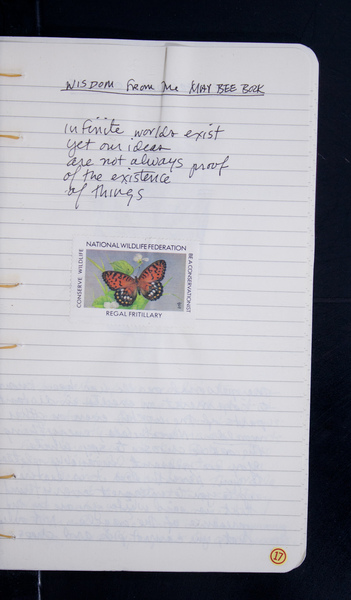 WISDOM From The MAY BEE BOOK
infinite worlds exist
yet our ideas
are not always proof
of the existence
of things
NATIONAL WILDLIFE FEDERATION
CONSERVE WILDLIFE
BE A CONSERVATIONIST
REGAL FRITILLARY
17